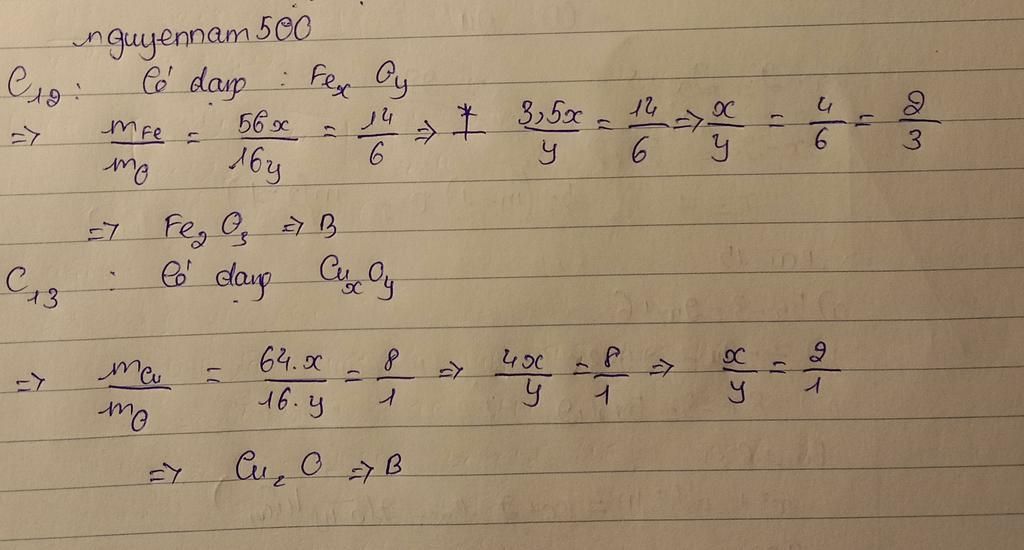 nguyennam500
C₁₂ : Có dạng : FeₓOᵧ
=> mFe/mO = 56x/16y = 14/6 => 3,5x/y = 14/6 => x/y = 4/6 = 2/3
=> Fe₂O₃ => B
C₁₃ : Có dạng CuₓOᵧ
=> mCu/mO = 64.x/16.y = 8/1 => 4x/y = 8/1 => x/y = 2/1
=> Cu₂O => B